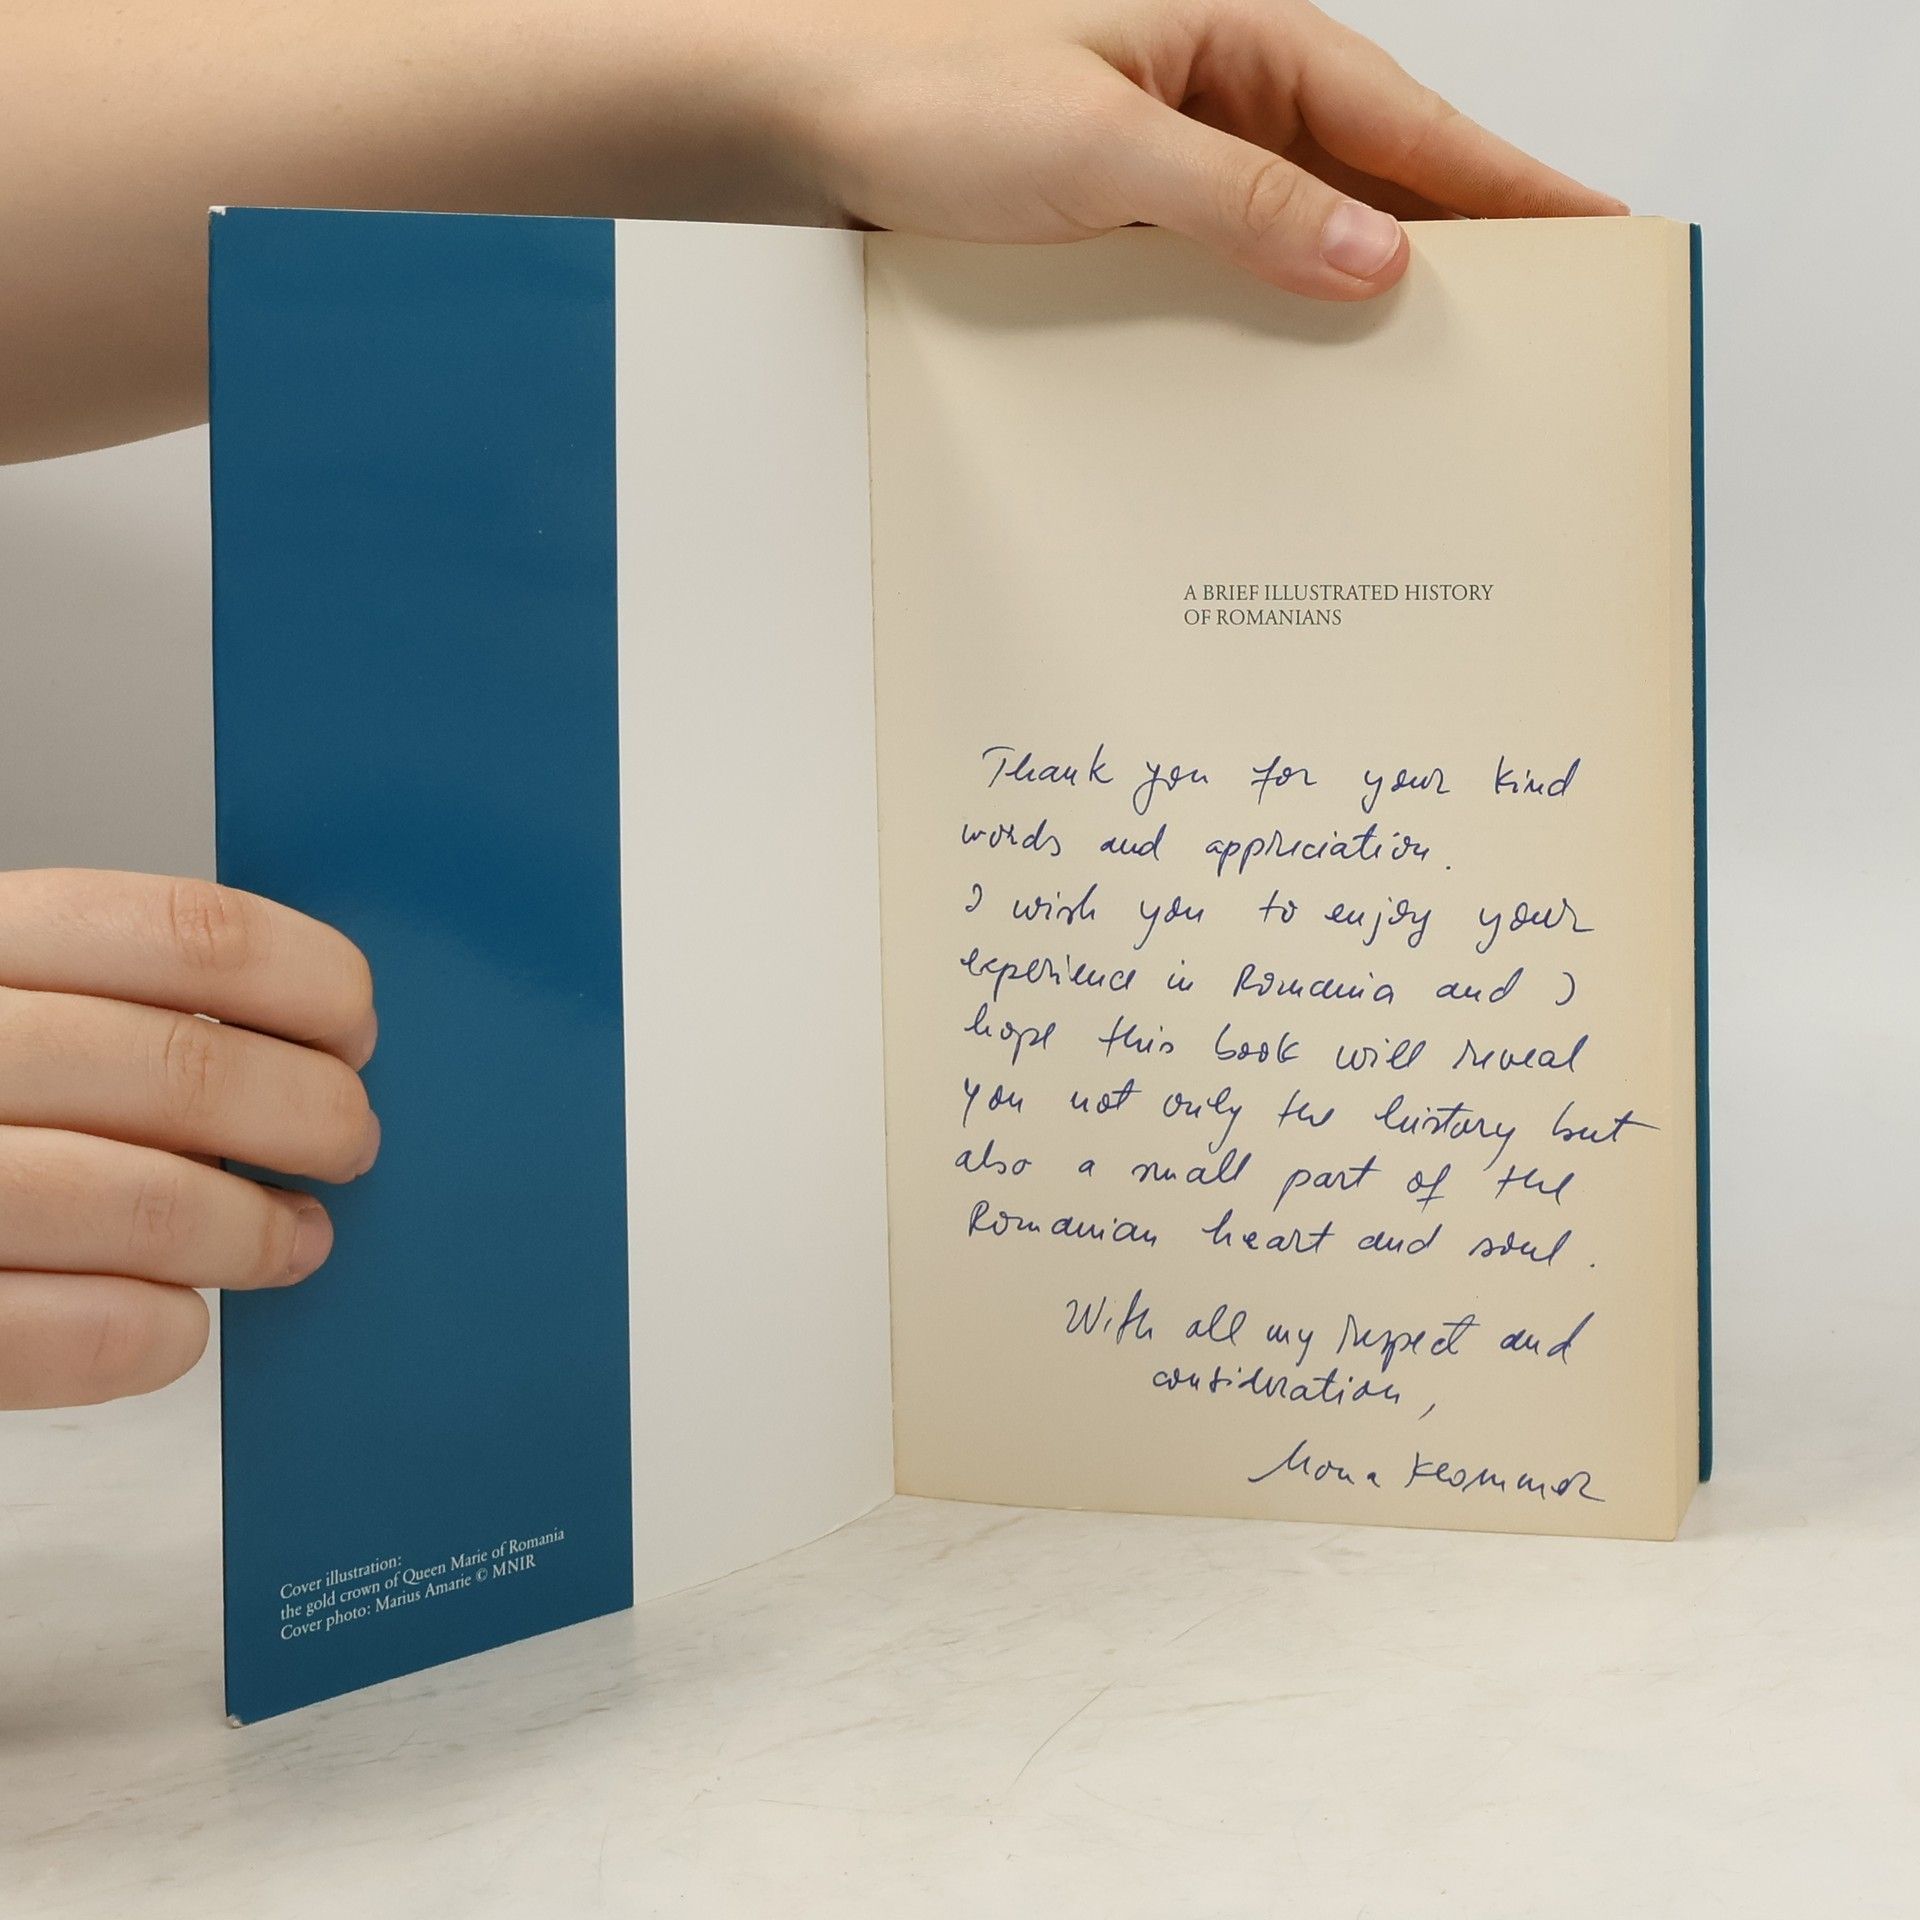 A BRIEF ILLUSTRATED HISTORY
OF ROMANIANS
Thank you for your kind
words and appreciation.
I wish you to enjoy your
experience in Romania and I
hope this book will reveal
you not only the history but
also a small part of the
Romanian heart and soul.
With all my respect and
consideration,
Mona
Cover illustration:
the gold crown of Queen Marie of Romania
Cover photo: Marius Amarie © MNIR